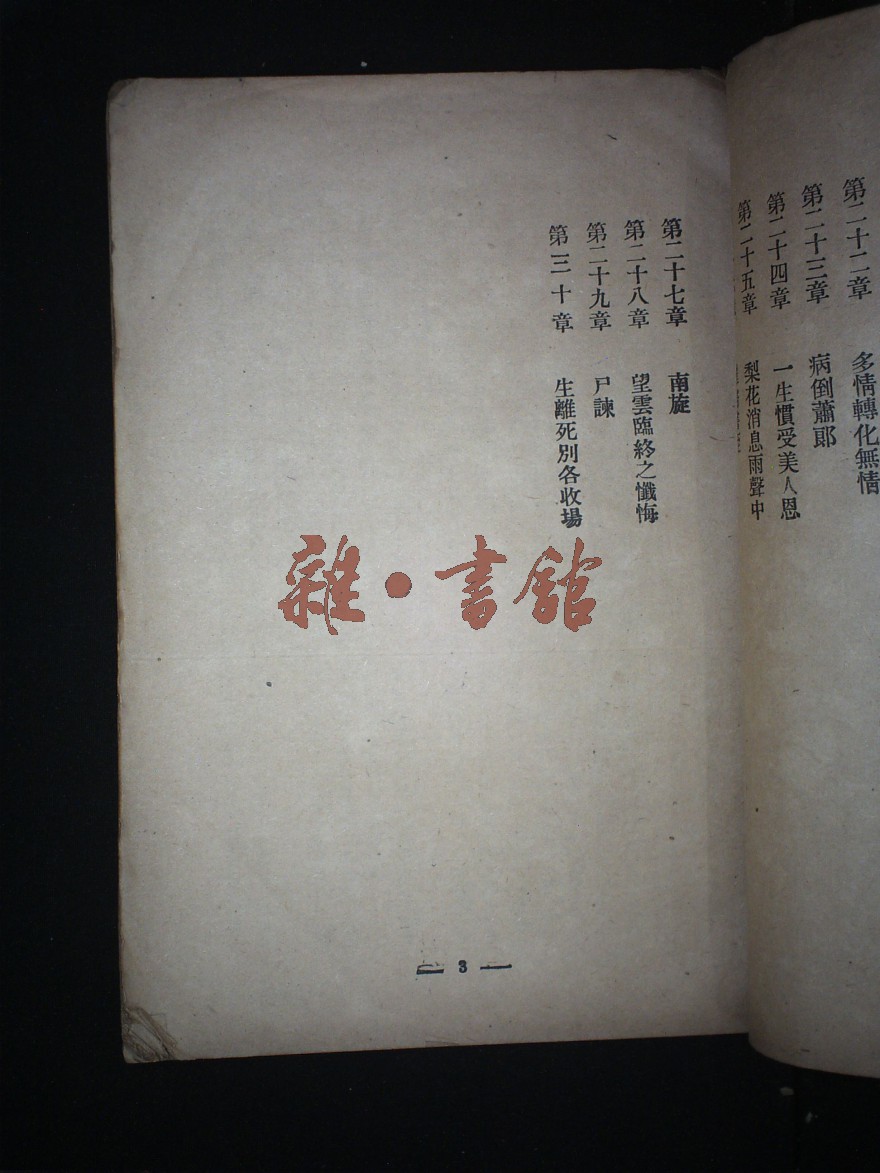 第二十二章　多情轉化無情
第二十三章　病倒蕭郎
第二十四章　一生慣受美人恩
第二十五章　梨花消息雨聲中
第二十七章　南旋
第二十八章　望雲臨終之懺悔
第二十九章　尸諫
第三十章　生離死別各收場
雜·書舘
3